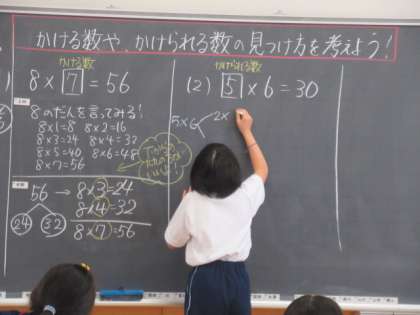 かける数や、かけられる数の見つけ方を考えよう！
かける数
8×7=56
8のだんを言ってみる！
8×1=8 8×2=16
8×3=24 8×4=32
8×5=40 8×6=48
8×7=56
56→8×3=24
8×4=32
24 32
8×7=56
かけられる数
(2) 5×6=30
5×6 2×